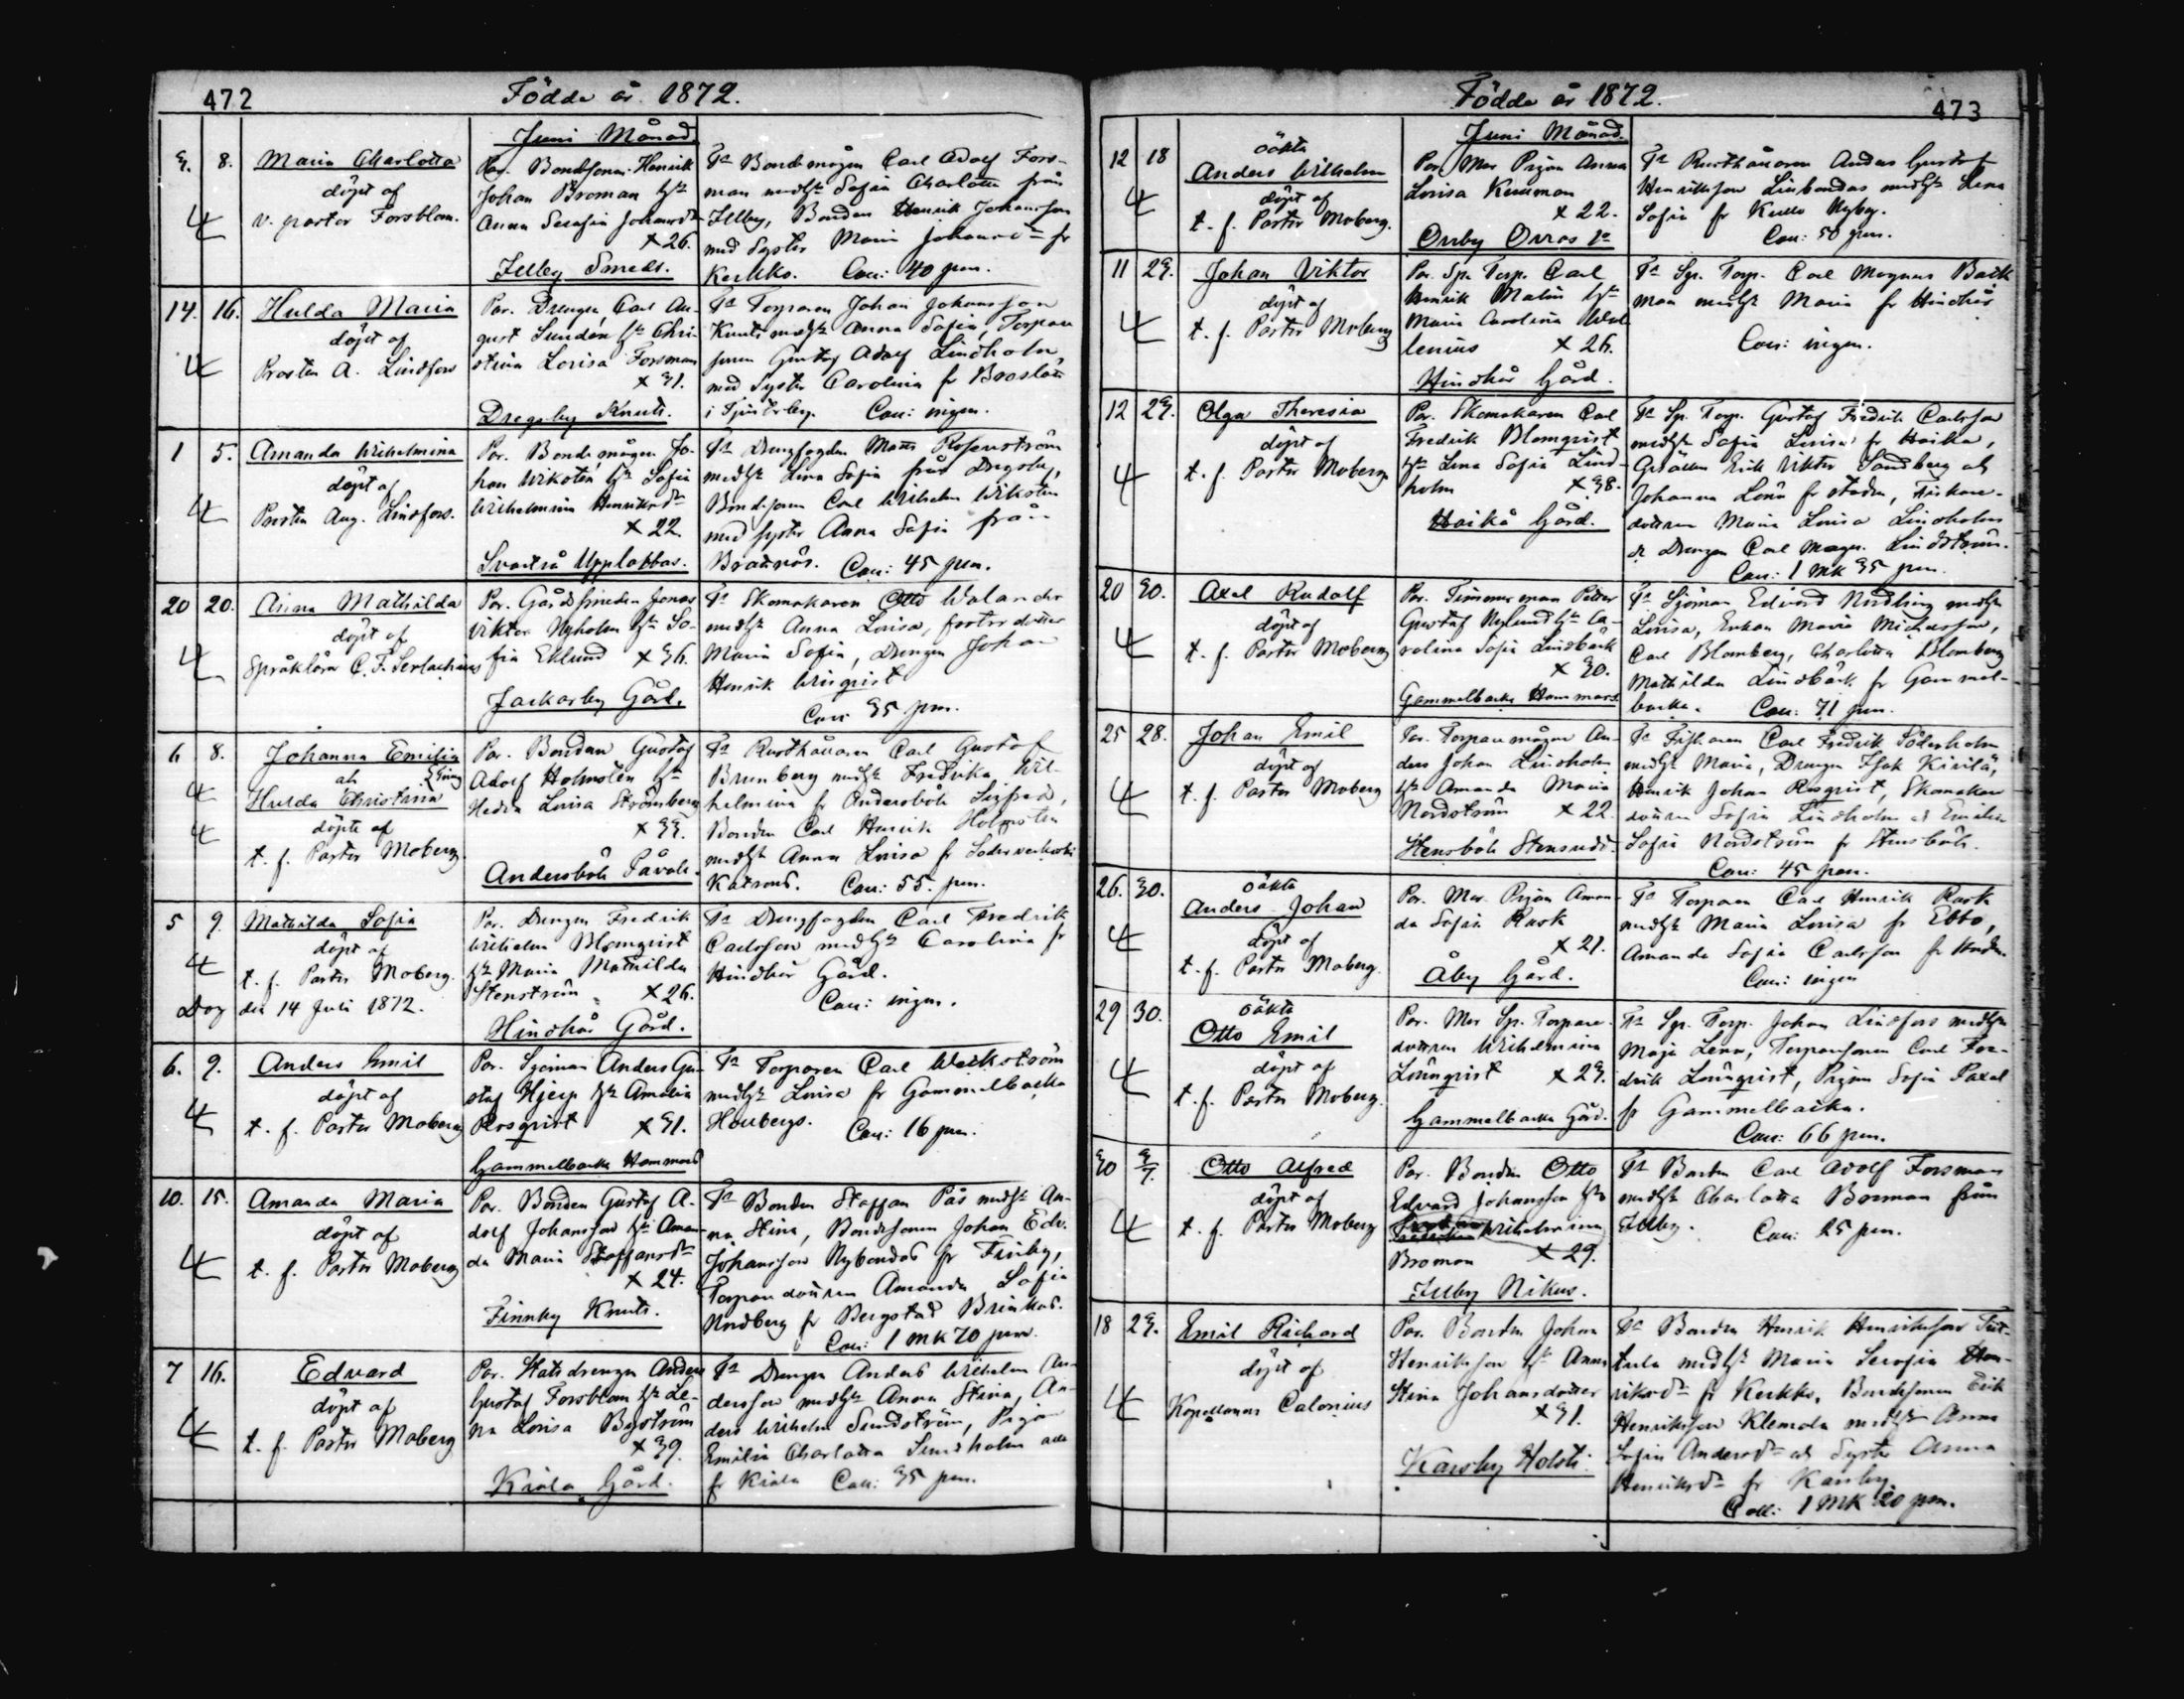 472
Födde år 1872.
Juni Månad
3. 8. Maria Charlotta
döpt af
v. pastor Forsblom.
Par. Bondsonen Henrik
Johan Broman hst
Anna Serafia Johansdr
x 26.
Illby Smeds.
Ts Bondemågen Carl Adolf Fors-
man medhst Sofia Charlotta från
Illby, Bonden Henrik Johansson
med Syster Maria Johansdr fr
Kerkko. Coll: 40 pen.
14. 16. Hulda Maria
döpt af
Prosten A. Lindfors
Par. Drengen Carl Au-
gust Sundén hst Chri-
stina Lovisa Forsman
x 31.
Drägsby Knuts.
Ts Torparen Johan Johansson
Knuts medhst Anna Sofia, Torpare
sonen Gustaf Adolf Lindholm,
med Syster Carolina fr Broslätt
i Tjusterby. Coll: ingen.
1 5. Amanda Wilhelmina
döpt af
Prosten Aug. Lindfors.
Par. Bondemågen Jo-
han Wikstén hst Sofia
Wilhelmina Henriksdr
x 22.
Svartså Upplabbas.
Ts Drengfogden Matts Rosenström
medhst Lena Sofia från Drägsby,
Bondsonen Carl Wilhelm Wikstén
med syster Anna Sofia från
Brattnäs. Coll: 45 pen.
20 20. Anna Mathilda
döpt af
Språklärn C. F. Serlachius
Par. Gårdssmeden Jonas
Viktor Nyholm hst So-
fia Eklund x 36.
Jackarby Gård.
Ts Skomakaren Otto Walander
medhst Anna Lovisa, fosterdotter
Maria Sofia, Drengen Johan
Henrik Wisqvist
Coll: 35 pen.
6 8. Johanna Emilia
och
Hulda Christina
döpte af
t. f. Pastor Moberg.
Par. Bonden Gustaf
Adolf Holmstén hst
Hedda Lovisa Strömberg
x 33.
Andersböle Påvals.
Ts Rusthållaren Carl Gustaf
Brunberg medhst Fredrika Wil-
helmina fr Andersböle Sigfreds,
Bonden Carl Henrik Holmstén
medhst Anna Lovisa fr Söderveckoski
Katrons. Coll: 55. pen.
5 9. Mathilda Sofia
döpt af
t. f. Pastor Moberg.
Dog den 14 Juli 1872.
Par. Drengen Fredrik
Wilhelm Blomqvist
hst Maria Mathilda
Stenström x 26.
Hindhår Gård.
Ts Drengfogden Carl Fredrik
Carlsson medhst Carolina fr
Hindhår Gård.
Coll: ingen.
6. 9. Anders Emil
döpt af
t. f. Pastor Moberg
Par. Sjöman Anders Gu-
staf Hjerp hst Amalia
Rosqvist x 31.
Gammelbacka Hammars
Ts Torparen Carl Weckström
medhst Lovisa fr Gammelbacka
Coll: 16 pen.
10. 15. Amanda Maria
döpt af
t. f. Pastor Moberg
Par. Bonden Gustaf A-
dolf Johansson hst Aman-
da Maria Staffansdr
x 24.
Finnby Knuts.
Ts Bonden Staffan Pås medhst An-
na Stina, Bondsonen Johan Edv.
Johansson Nybondas fr Finby,
Torparedottren Amanda Sofia
Nordberg fr Bergstad Brinkas.
Coll: 1 mk 70 pen.
7 16. Edvard
döpt af
t. f. Pastor Moberg
Par. Statdrengen Anders
Gustaf Forsblom hst Le-
na Lovisa Byström
x 39.
Kiala Gård.
Ts Drengen Anders Wilhelm An-
dersson medhst Anna Stina, An-
ders Wilhelm Sundström, Pigan
Emilia Charlotta Sundholm alla
fr Kiala Coll: 35 pen.
Födde år 1872.
473
Juni Månad.
12 18 oäkta
Anders Wilhelm
döpt af
t. f. Pastor Moberg.
Par. Mor Pigan Anna
Lovisa Kullman
x 22.
Orrby Orras
Ts Rusthållaren Anders Gustaf
Henriksson Linbondas medhst Lena
Sofia fr Kullo Nyby.
Coll: 50 pen.
11 23. Johan Viktor
döpt af
t. f. Pastor Moberg
Par. Sp. Torp. Carl
Henrik Malin hst
Maria Carolina Wal
lenius x 26.
Hindhår Gård.
Ts Sp. Torp. Carl Magnus Back
man medhst Maria fr Hindhår
Coll: ingen.
12 23. Olga Theresia
döpt af
t. f. Pastor Moberg
Par. Skomakaren Carl
Fredrik Blomqvist
hst Lena Sofia Lind-
holm x 38.
Haikå Gård.
Ts Sp. Torp. Gustaf Fredrik Carlsson
medhst Sofia Lovisa fr Haika,
Gesällen Erik Viktor Sandberg och
Johanna Lönn fr staden, Fiskare-
dottren Maria Lovisa Lindholm
o. Drengen Carl Magn. Lindström.
Coll: 1 mk 35 pen.
20 30. Axel Rudolf
döpt af
t. f. Pastor Moberg
Par. Timmerman Petter
Gustaf Nylund hst Ca-
rolina Sofia Lindbäck
x 30.
Gammelbacka Hammars
Ts Sjöman Edvard Nordling medhst
Lovisa, Enkan Maria Michelsson,
Carl Blomberg, Charlotta Blomberg
Mathilda Lindbäck fr Gammel-
backa. Coll: 71 pen.
25 28. Johan Emil
döpt af
t. f. Pastor Moberg
Par. Torparemågen An-
ders Johan Lindholm
hst Amanda Maria
Nordström x 22.
Stensböle Stensudd.
Ts Fiskaren Carl Fredrik Söderholm
medhst Maria, Drengen Isak Kivilä,
Henrik Johan Rosqvist, Skomakare
dottren Sofia Lindholm o. Emilia
Sofia Nordström fr Stensböle.
Coll: 45 pen.
26. 30. oäkta
Anders Johan
döpt af
t. f. Pastor Moberg.
Par. Mor Pigan Aman-
da Sofia Rask
x 21.
Åby Gård.
Ts Torparen Carl Henrik Rask
medhst Maria Lovisa fr Ebbo,
Amanda Sofia Carlsson fr
Coll: ingen
29 30. oäkta
Otto Emil
döpt af
t. f. Pastor Moberg.
Par. Mor Sp. Torpare
dottren Wilhelmina
Lönnqvist x 23.
Gammelbacka Gård.
Ts Sp. Torp. Johan Lindfors medhst
Maja Lena, Torparesonen Carl Fre-
drik Lönnqvist, Pigan Sofia Paxal
fr Gammelbacka.
Coll: 66 pen.
30 3/7. Otto Alfred
döpt af
t. f. Pastor Moberg
Par. Bonden Otto
Edvard Johansson hst
Wilhelmina
Broman x 29.
Illby Nikus.
Ts Bonden Carl Adolf Forsman
medhst Charlotta Broman från
Illby. Coll: 25 pen.
18 23. Emil Richard
döpt af
Kapellanen Calonius
Par. Bonden Johan
Henriksson hst Anna
Stina Johansdotter
x 31.
Karsby Holsti.
Ts Bonden Henrik Henriksson
medhst Maria Serafia Hen-
riksdr fr Kerkko, Bondsonen Erik
Henriksson Klemola medhst Anna
Sofia Andersdr och Syster Anna
Henriksdr fr Karsby
Coll: 1 mk 20 pen.